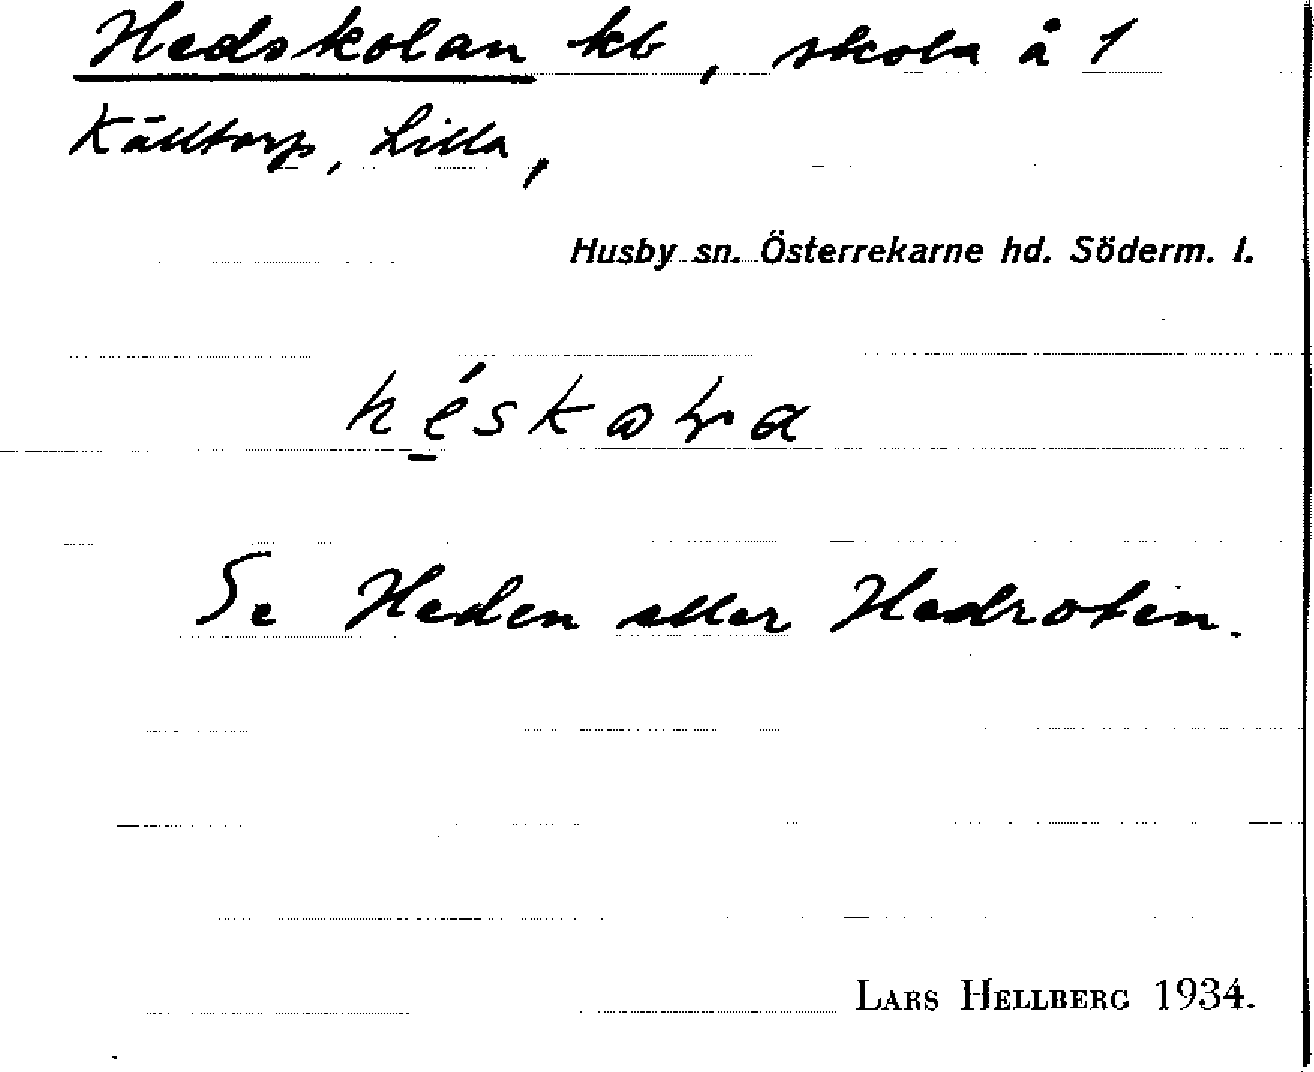 Hedskolan kb, skola å 1
Källtorp, Lilla,
Husby sn. Österrekarne hd. Söderm. l.
Se Heden eller Hedroten.
LARS HELLBERG 1934.